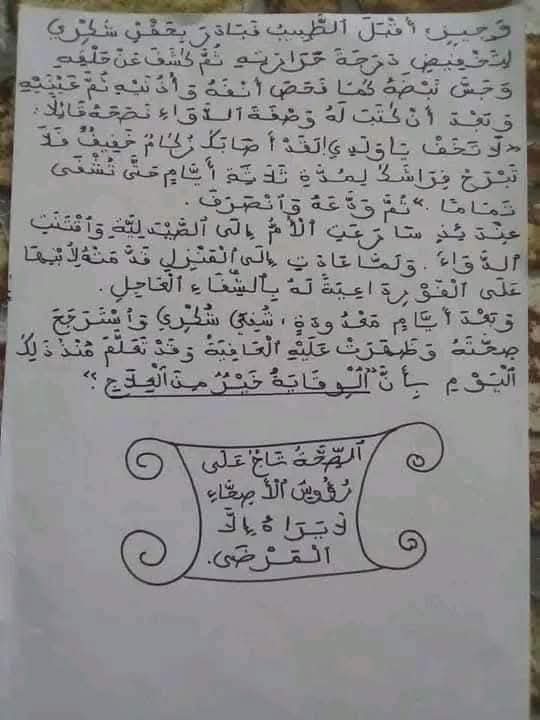 وَحِينَ أَقْبَلَ ٱلطَّبِيبُ فَبَادَرَ بِحَقْنِ شُكْرِي
لِتَخْفِيضِ دَرَجَةِ حَرَارَتِهِ ثُمَّ كَشَفَ عَنْ حَلْقِهِ
وَجَسَّ نَبْضَهُ كَمَا فَحَصَ أَنْفَهُ وَأُذُنَيْهِ ثُمَّ عَيْنَيْهِ
وَبَعْدَ أَنْ كَتَبَ لَهُ وَصْفَةَ الدَّوَاءِ نَصَحَهُ قَائِلًا:
«لَا تَخَفْ يَا وَلَدِي لَقَدْ أَصَابَكَ زُكَامٌ خَفِيفٌ فَلَا
تَبْرَحْ فِرَاشَكَ لِمُدَّةِ ثَلَاثَةِ أَيَّامٍ حَتَّى تُشْفَى
تَمَامًا.» ثُمَّ وَدَّعَهُ وَٱنْصَرَفَ.
عِنْدَئِذٍ سَارَعَتِ ٱلْأُمُّ إِلَى ٱلصَّيْدَلِيَّةِ وَٱقْتَنَتِ
ٱلدَّوَاءَ. وَلَمَّا عَادَتِ إِلَى ٱلْمَنْزِلِ قَدَّمَتْهُ لِٱبْنِهَا
عَلَى ٱلْفَوْرِ دَاعِيَةً لَهُ بِٱلشِّفَاءِ ٱلْعَاجِلِ.
وَبَعْدَ أَيَّامٍ مَعْدُودَةٍ، شُفِيَ شُكْرِي وَٱسْتَرْجَعَ
صِحَّتَهُ وَظَهَرَتْ عَلَيْهِ ٱلْعَافِيَةُ وَقَدْ تَعَلَّمَ مُنْذُ ذَلِكَ
ٱلْيَوْمِ بِأَنَّ "ٱلْوِقَايَةُ خَيْرٌ مِنَ ٱلْعِلَاجِ."
ٱلصِّحَّةُ تَاجٌ عَلَى
رُؤُوسِ ٱلْأَصِحَّاءِ
لَا يَرَاهُ إِلَّا
ٱلْمَرْضَى.